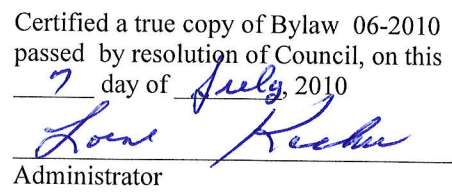 Certified a true copy of Bylaw 06-2010
passed by resolution of Council, on this
7 day of July, 2010
Administrator